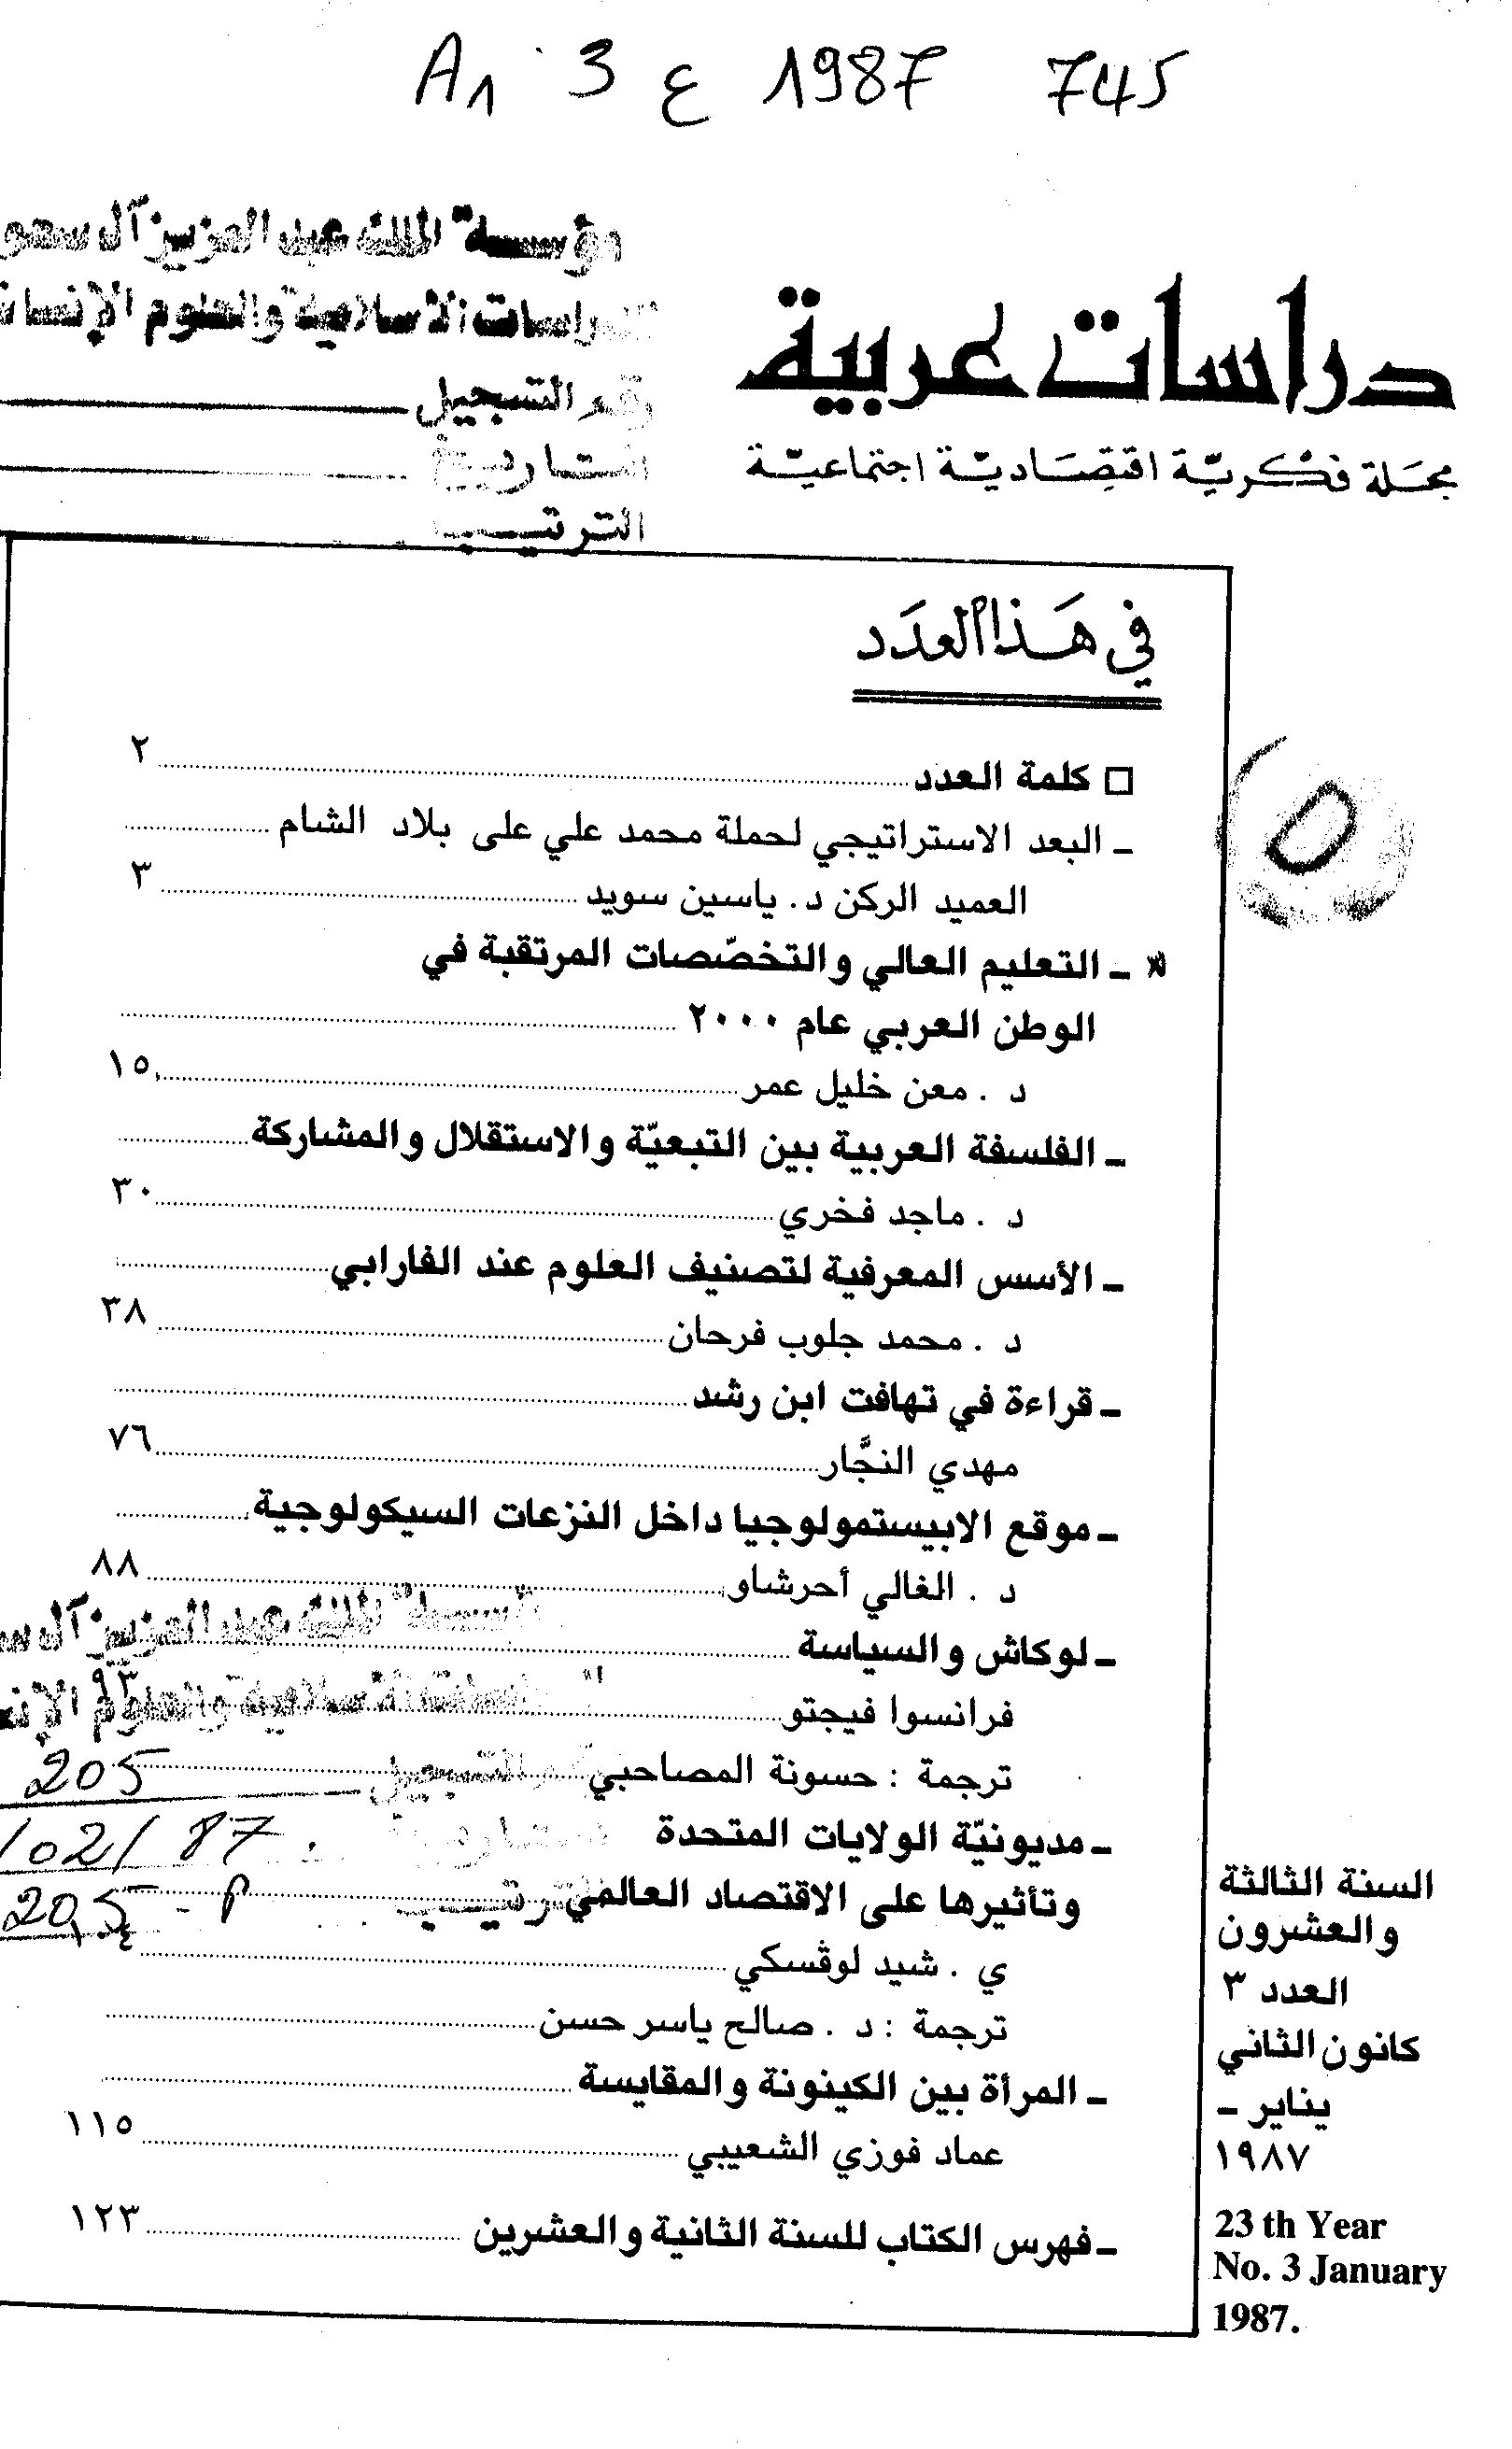 A1 3 ع 1987 745
مؤسسة الملك عبد العزيز آل سعو
للدراسات الاسلامية والعلوم الإنسان
رقم التسجيل
التاريخ
الترتيب
دراسات عربية
مجلة فكريّة اقتصاديّة اجتماعيّة
في هذا العدد
□ كلمة العدد ٢
ـ البعد الاستراتيجي لحملة محمد علي على بلاد الشام
العميد الركن د. ياسين سويد ٣
ـ التعليم العالي والتخصّصات المرتقبة في
الوطن العربي عام ٢٠٠٠
د . معن خليل عمر ١٥
ـ الفلسفة العربية بين التبعيّة والاستقلال والمشاركة
د . ماجد فخري ٣٠
ـ الأسس المعرفية لتصنيف العلوم عند الفارابي
د . محمد جلوب فرحان ٣٨
ـ قراءة في تهافت ابن رشد
مهدي النجَّار ٧٦
ـ موقع الابيستمولوجيا داخل النزعات السيكولوجية
د . الغالي أحرشاو ٨٨
مؤسسة الملك عبد العزيز آل س
ـ لوكاش والسياسة
فرانسوا فيجتو ٩٣
ترجمة : حسونة المصاحبي
رقم التسجيل 205
ـ مديونيّة الولايات المتحدة
/02/87
وتأثيرها على الاقتصاد العالمي
الترتيب 205 - P
ي . شيد لوڤسكي
ترجمة : د . صالح ياسر حسن
ـ المرأة بين الكينونة والمقايسة
عماد فوزي الشعيبي ١١٥
ـ فهرس الكتاب للسنة الثانية والعشرين ١٢٣
السنة الثالثة
والعشرون
العدد ٣
كانون الثاني
يناير ـ
١٩٨٧
23 th Year
No. 3 January
1987.